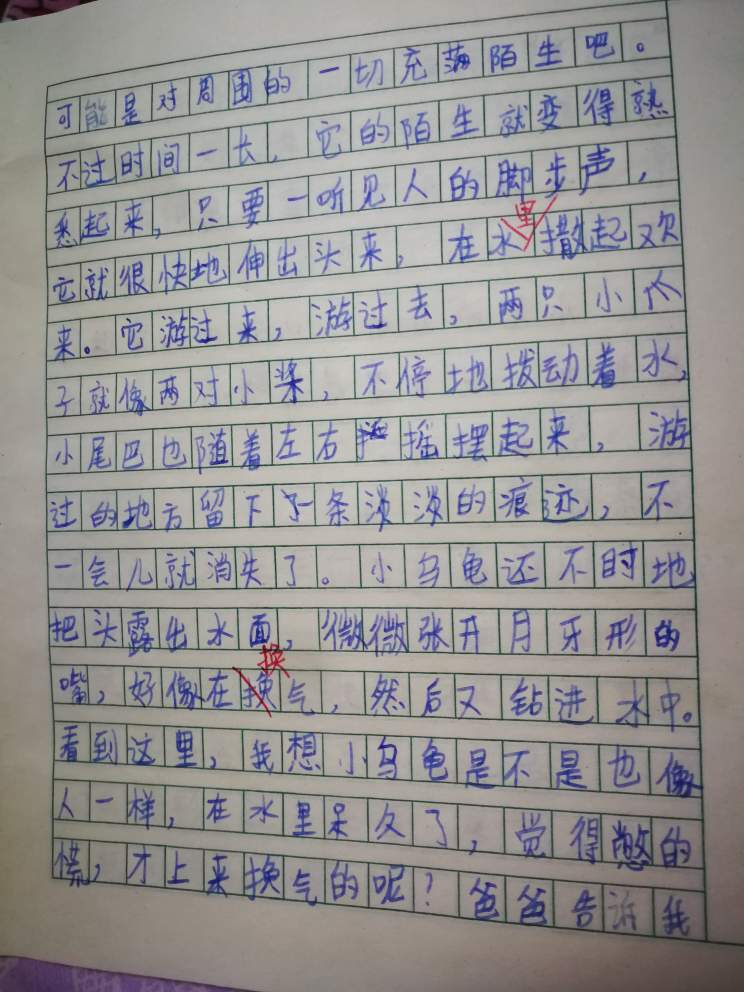 可能是对周围的一切充满陌生吧。
不过时间一长，它的陌生就变得熟
悉起来，只要一听见人的脚步声，
它就很快地伸出头来，在水里撒起欢
来。它游过来，游过去，两只小爪
子就像两对小桨，不停地拨动着水，
小尾巴也随着左右摇摆起来，游
过的地方留下了一条淡淡的痕迹，不
一会儿就消失了。小乌龟还不时地
把头露出水面，微微张开月牙形的
嘴，好像在换气，然后又钻进水中。
看到这里，我想小乌龟是不是也像
人一样，在水里呆久了，觉得憋的
慌，才上来换气的呢？爸爸告诉我